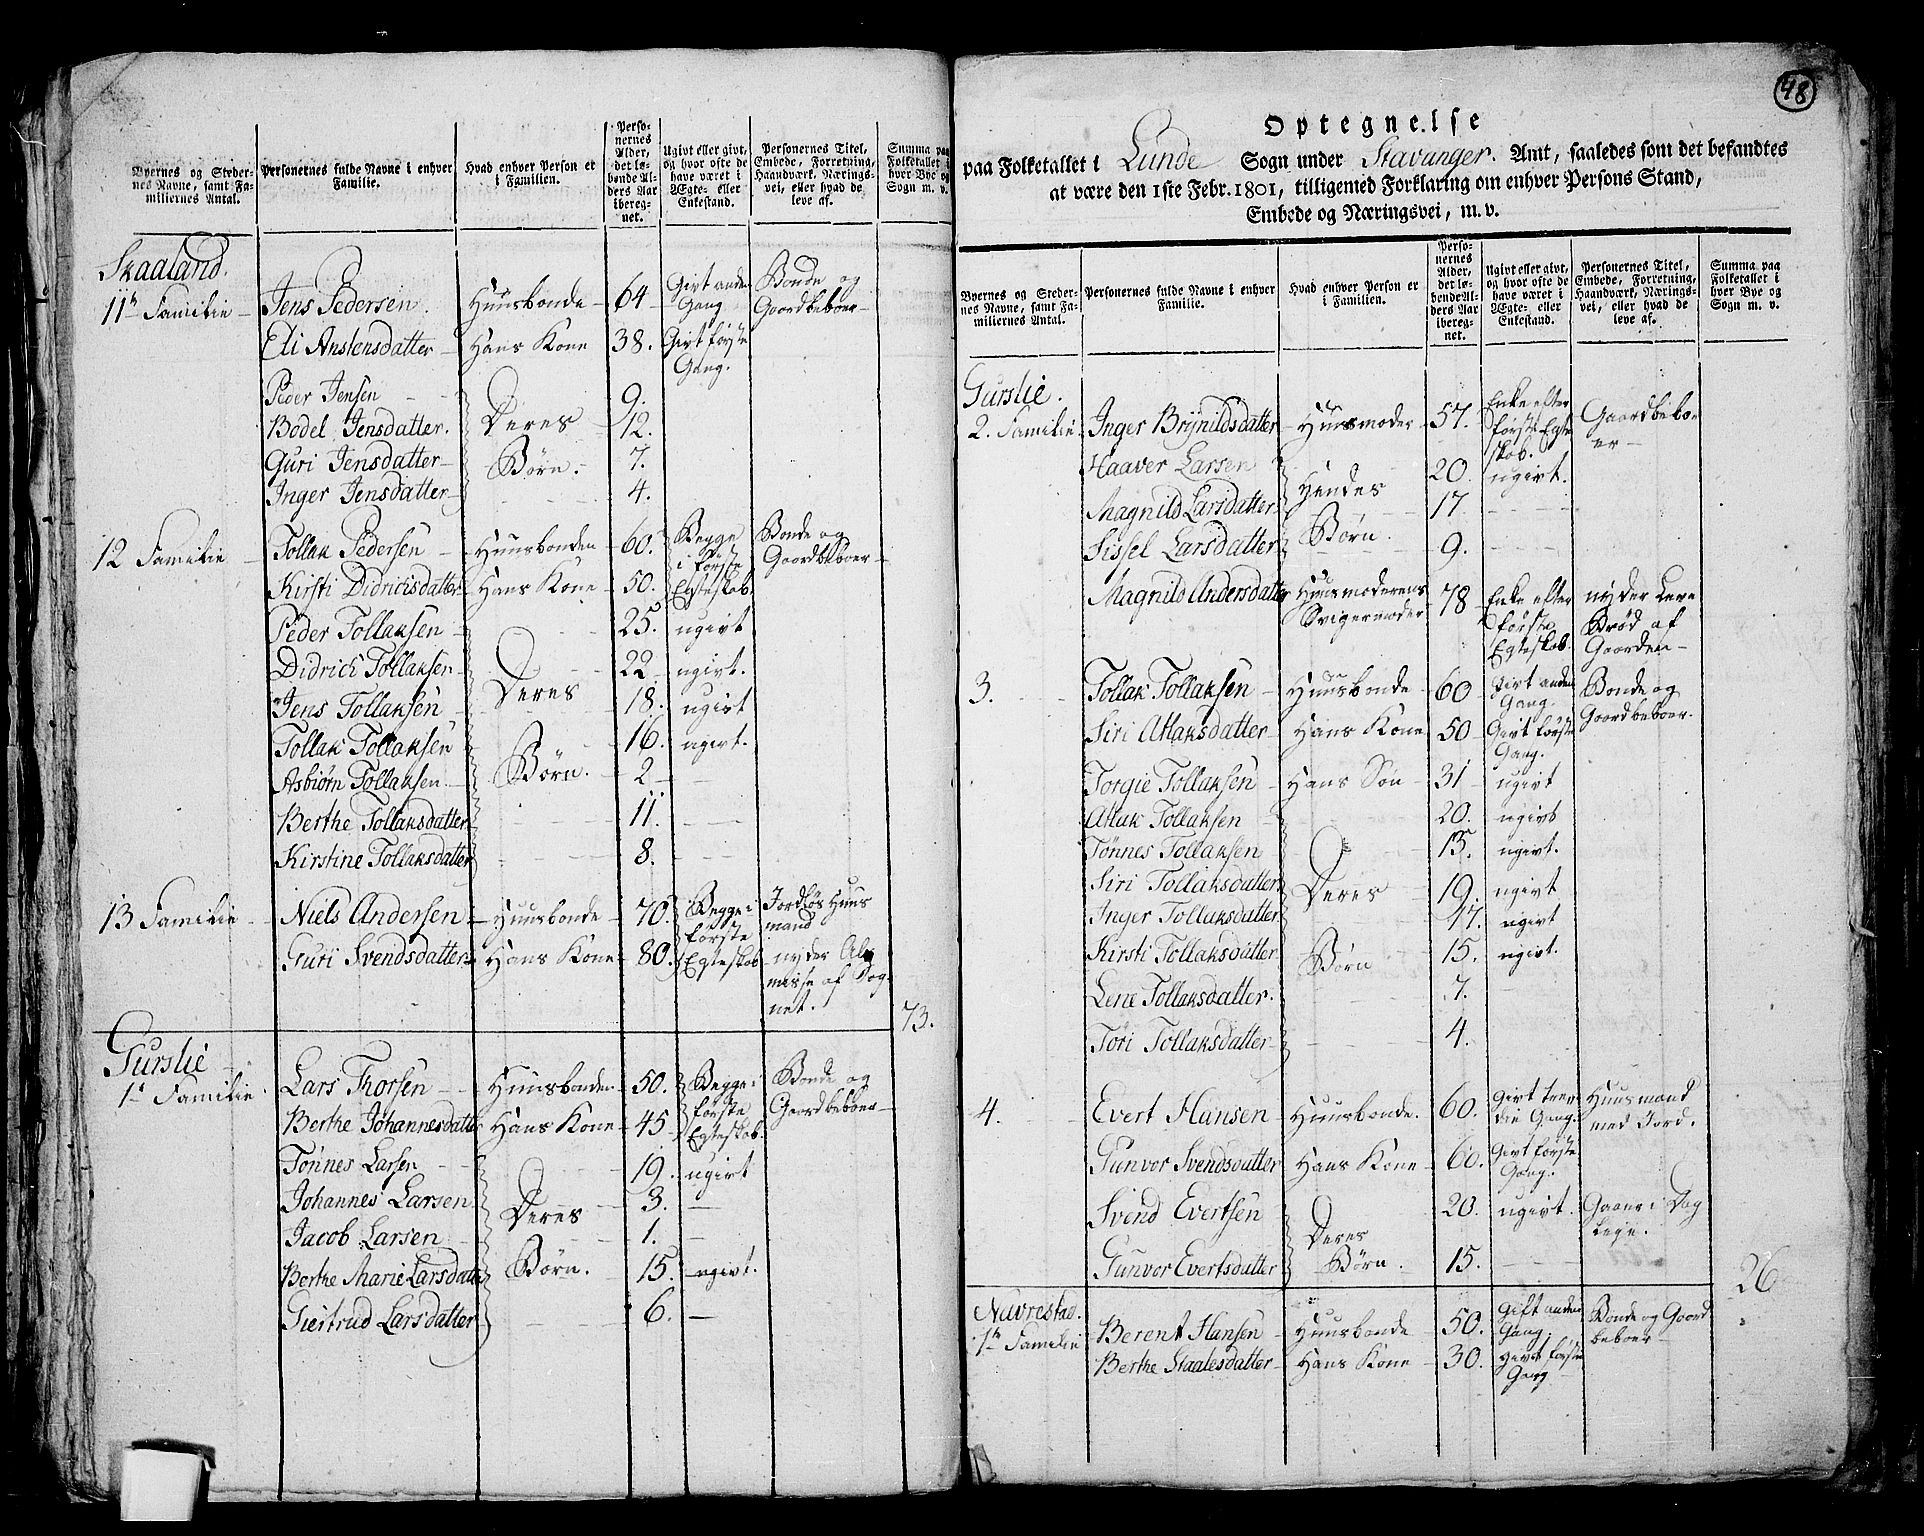 Byernes og Steder-
nes Navne, samt Fa-
miliernes Antal.
Personernes fulde Navne i enhver
Familie.
Hvad enhver Person er
i Familien.
Perso-
nernes
Alder,
det lø-
bende Al-
ders Aar
ibereg-
net.
Ugivt eller givt,
og hvor ofte de
have været i
Ægte- eller
Enkestand.
Personernes Titel,
Embede, Forretning,
Haandværk, Nærings-
vei, eller hvad de
leve af.
Summa paa
Folketallet i
hver Bye og
Sogn m. v.
Skaaland.
11te Familie – Jens Pedersen. Huusbonde – 64 Givt anden Gang Bonde og Goordbeboer –
Eli Anstensdatter – Hans Kone 38. Givt første Gang.
Peder Jensen – – 9.
Bodel Jensdatter. Deres 12.
Guri Jensdatter – Børn. – 7.
Inger Jensdatter – 4.
12 Familie – Tollak Pedersen – Huusbonden 60. Begge i første Egteskab Bonde og Goordbeboer –
Kirsti Didricisdatter Hans Kone – 50.
Peder Tollaksen – 25. ugivt
Didrich Tollaksen – 22 ugivt.
Jens Tollaksen – Deres 18. ugivt
Tollak Tollaksen 16. ugivt.
Asbiørn Tollaksen. Børn. – 2 –
Berthe Tollaksdatter 11.
Kirstine Tollaksdatter 8.
13 Familie – Niels Andersen – Huusbonde – 70. Begge i første Egteskab Jordløs Huus mand
Guri Svendsdatter – Hans Kone – 80. nyder Al misse af Sog net.
73.
Gurslie
1te Familie. Lars Thorsen – Huusbonden – 50. Begge i første Egteskab. Bonde og Goordbeboer –
Berthe Johannesdatter Hans Kone – 45
Tonnes Larsen – 19. ugivt
Johannes Larsen Deres 3. –
Jacob Larsen 1. –
Berthe Marie Larsdatter Børn. – 15. – ugivt.
Giertrud Larsdatter 6. –
48
Optegnelse
paa Folketallet i Lunde Sogn under Stavanger. Amt, saaledes som det befandtes
at være den 1ste Febr. 1801, tilligemed Forklaring om enhver Persons Stand,
Embede og Næringsvei, m. v.
Byernes og Steder-
nes Navne, samt Fa-
miliernes Antal.
Personernes fulde Navne i enhver
Familie.
Hvad enhver Person er
i Familien.
Perso-
nernes
Alder,
det lø-
bende Al-
ders Aar
ibereg-
net.
Ugivt eller givt,
og hvor ofte de
have været i
Ægte- eller
Enkestand.
Personernes Titel,
Embede, Forretning,
Haandværk, Nærings-
vei, eller hvad de
leve af.
Summa paa
Folketallet i
hver Bye og
Sogn m. v.
Gurslie.
2. Familie. Inger Brynildsdatter Huusmoder – 57. Enke efter første Egte skab. Gaardbebo er –
Haaver Larsen 20. ugivt.
Magnild Larsdatter Hendes 17
Sissel Larsdatter Børn. 9.
Magnild Andersdatter Huusmoderens Svigermoder 78 Enke efter første Egteskab. nyder Leve Brød af Goorden –
3. Tollak Tollaksen – Huusbonde – 60 Givt anden Gang. Bonde og Goordbeboer.
Siri Atlaksdatter Hans Kone 50 Givt første Gang.
Torgie Tollaksen Hans Søn 31 ugivt
Atlak Tollaksen – 20. ugivt
Tønnes Tollaksen 15. ugivt.
Siri Tollaksdatter Deres 19. ugivt
Inger Tollaksdatter 17. ugivt
Kirsti Tollaksdatter Børn 15. ugivt.
Lene Tollaksdatter. 7.
Tori Tollaksdatter 4.
4. Evert Hansen – Huusbonde. 60. Givt tree die Gang. Huusmand med Jord.
Gunvor Svendsdatter Hans Kone – 60. Givt første Gang.
Svend Evertsen Deres 20. ugivt. Gaaer i Dag Leje.
Gunvor Evertsdatter Børn. 15.
26
Navrestad.
1te Familie Berent Hansen – Huusbonde 50. Gift anden Gang. Bonde og Goord beboer –
Berthe Staalesdatter – Hans Kone 30. Givt første Gang